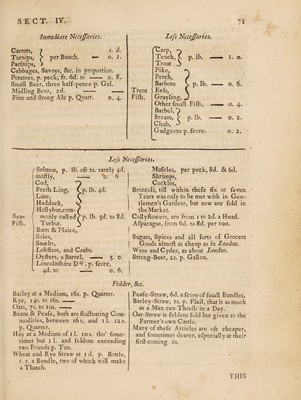 SECT. IV. 71
Immediate Necessaries.
s. d.
Carrots,
Turnips, } per Bunch. — 0. 1.
Parsnips,
Cabbages, Savoys, &c. in proportion.
Potatoes, p. peck; fr. 6d. to — 0. 8.
Small Beer, three half-pence p. Gal.
Middling Beer, 2d.
Fine and strong Ale p. Quart. 0. 4.
Less Necessaries.
Trout Fish.
Carp,
Tench, } p. lb. — 1. 0.
Trout
Pike,
Perch,
Barbott } p. lb. — 0. 6.
Eels,
Grayling,
Other small Fish, — 0. 4.
Barbel,
Bream, } p. lb. — 0. 2.
Chub,
Gudgeons p. score. 0. 2.
Less Necessaries.
Sea-Fish.
Salmon, p. lb. oft 1s. rarely 4d.
mostly, — 0. 6
Cod,
Fresh Ling, } p. lb. 4d.
Lute,
Haddock,
Hollybut, com-
monly called } p. lb. 3d to 8d.
Turbut.
Burt & Plaice,
Soles,
Smelts,
Lobsters, and Crabs.
Oysters, a Barrel, — 5. 0.
Lincolnshire Do. p. score,
4d. to — 0. 6.
Muscles, per peck, 8d. & 6d.
Shrimps,
Cockles,
Broccoli, till within these six or seven
Years was only to be met with in Gen-
tlemen's Gardens, but now are sold in
the Market.
Collyflowers, are from 1 to 2d. a Head.
Asparagus, from 6d. to 8d. per 100.
Sugars, Spices and all sorts of Grocers
Goods almost as cheap as in London.
Wine and Cyder, as about London.
Strong-Beer, 2s. p. Gallon.
Fodder, &c.
Barley at a Medium, 16s. p. Quarter.
Rye, 14s. to 16s. —
Oats, 7s. to 10s. —
Beans & Pease, both are fluctuating Com-
modities, between 16s. and 1 l. 12s.
p. Quarter.
Hay at a Medium of 1 l. 10s. tho' some-
times but 1 l. and seldom exceeding
two Pounds p. Tun.
Wheat and Rye Straw at 1 d. p. Bottle,
i. e. a Bundle, two of which will make
a Thatch.
Pease-Straw, 6d. a score of small Bundles.
Barley-Straw, 1s. p. Flail, that is as much
as a Man can Thresh in a Day.
Oat-Straw is seldom sold but given to the
Farmer's own Cattle.
Many of these Articles are oft cheaper,
and sometimes dearer, especially at their
first coming in.
THIS